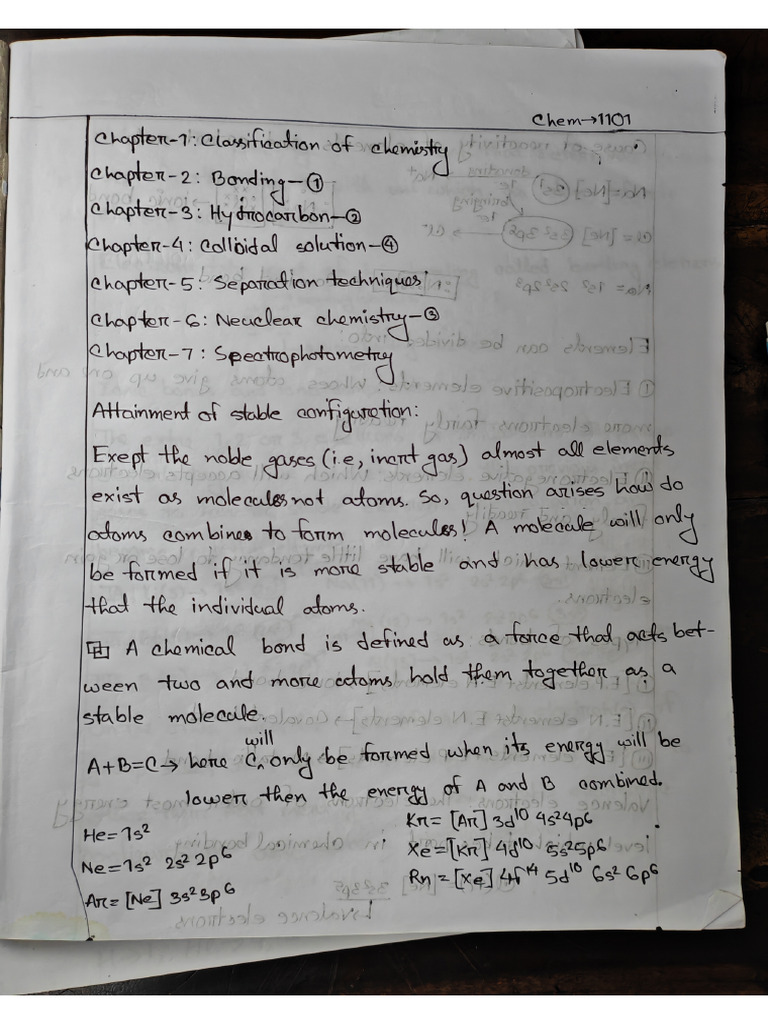 Chem→1101
Chapter-1: Classification of chemistry
Chapter-2: Bonding—①
Chapter-3: Hydrocarbon—②
Chapter-4: Colloidal solution—④
Chapter-5: Separation techniques
Chapter-6: Neuclear chemistry—③
Chapter-7: Spectrophotometry
Attainment of stable configuration:
Exept the noble gases (i.e, inert gas) almost all elements
exist as molecules not atoms. So, question arises how do
atoms combines to form molecules! A molecule will only
be formed if it is more stable and has lower energy
that the individual atoms.
A chemical bond is defined as a force that acts bet-
ween two and more atoms hold them together as a
stable molecule.
A+B=C→ here C will only be formed when its energy will be
lower then the energy of A and B combined.
He=1s²
Ne=1s² 2s² 2p⁶
Ar=[Ne] 3s²3p⁶
Kr=[Ar] 3d¹⁰ 4s²4p⁶
Xe=[Kr] 4d¹⁰ 5s²5p⁶
Rn=[Xe] 4f¹⁴ 5d¹⁰ 6s² 6p⁶